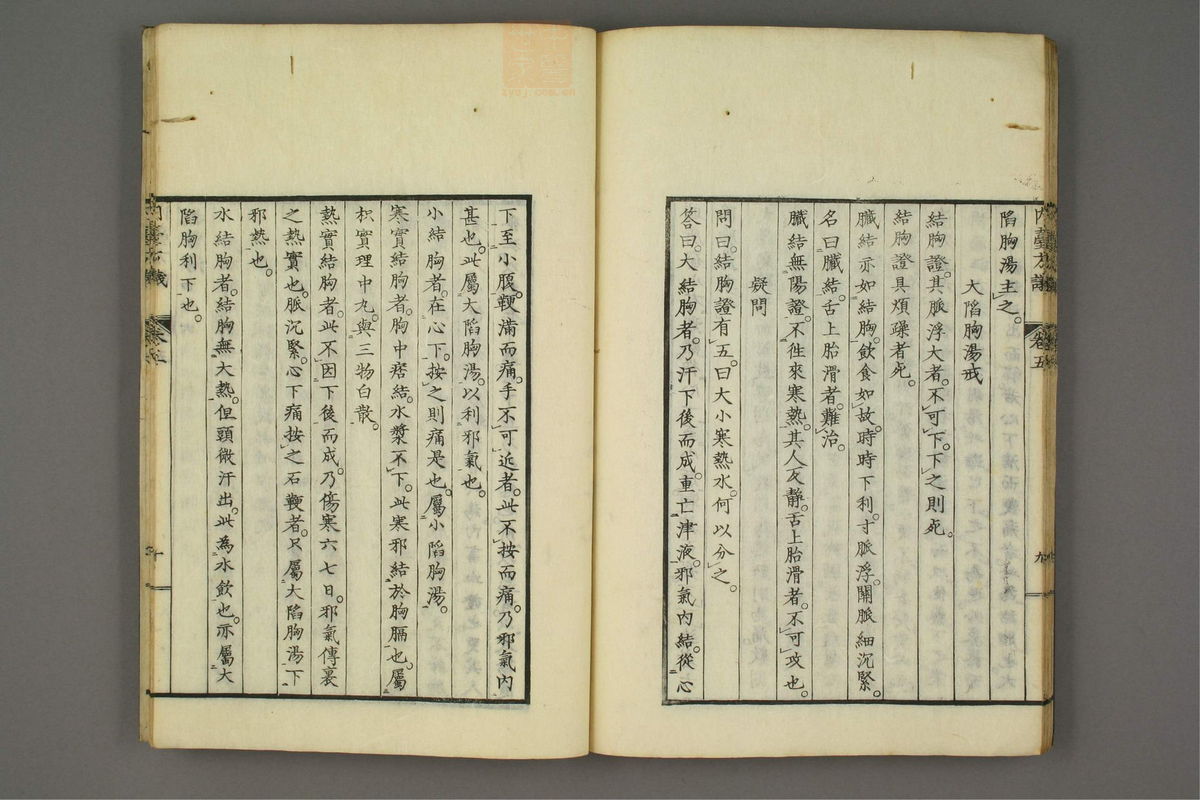 陷胸湯主之。
大陷胸湯戒
結胸證。其脈浮大者。不可下。下之則死。
結胸證具煩躁者死。
臟結亦如結胸。飲食如故。時時下利寸脈浮。關脈細沉緊。
名曰臟結。舌上胎滑者。難治。
臟結無陽證。不徃來寒熱。其人反靜。舌上胎滑者。不可攻也。
疑問
問曰。結胸證有五。曰大小寒熱水。何以分之。
答曰。大結胸者。乃汗下後而成。重亡津液。邪氣內結。從心
卷五
九
下至小腹。鞕滿而痛。手不可近者。此不按而痛。乃邪氣內
甚也。此屬大陷胸湯。以利邪氣也。
小結胸者。在心下。按之則痛是也。屬小陷胸湯。
寒實結胸者。胸中痞結。水漿不下。此寒邪結於胸膈也。屬
枳實理中丸。與三物白散。
熱實結胸者。此不因下後而成。乃傷寒六七日。邪氣傳裹
之熱實也。脈沉緊。心下痛按之石鞕者。只屬大陷胸湯下
邪熱也。
水結胸者。結胸無大熱。但頭微汗出。此為水飲也。亦屬大
陷胸利下也。
zysj.com.cn